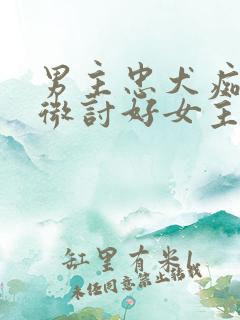 男主忠犬痴
微討好女主
缸里有米l
未经同意禁止转载